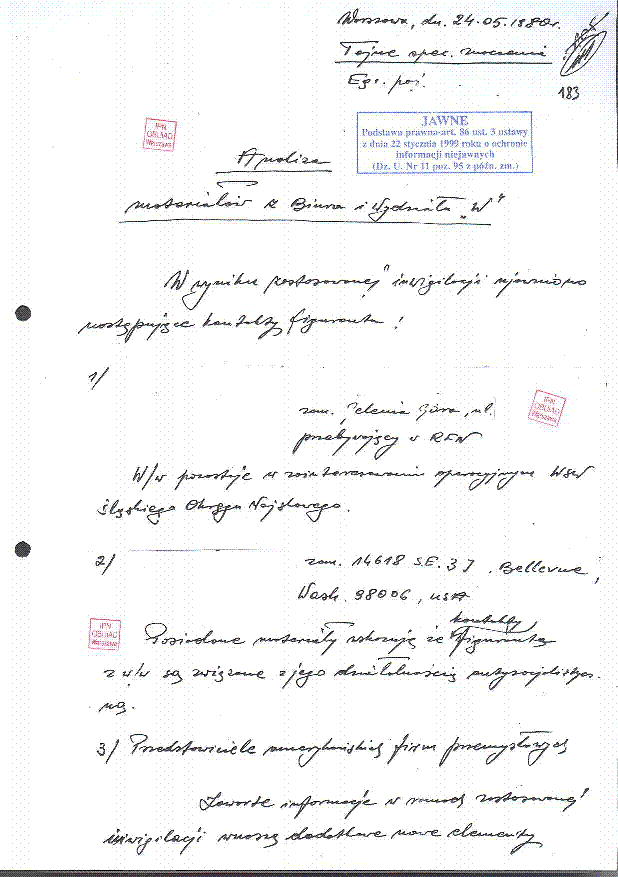 Warszawa, dn. 24.05.1980r.
Tajne spec. znaczenia
Egz. poj.
183
IPN
OBUiAD
Warszawa
JAWNE
Podstawa prawna-art. 86 ust. 3 ustawy
z dnia 22 stycznia 1999 roku o ochronie
informacji niejawnych
(Dz. U. Nr 11 poz. 95 z późn. zm.)
Analiza
materiałów z Biura i Wydziału „W"
W wyniku zastosowanej inwigilacji ujawniono
następujące kontakty figuranta!
1/
zam. Jelenia Góra, ul.
IPN
OBUiAD
Warszawa
przebywający w RFN
W/w pozostaje w zainteresowaniu operacyjnym WSW
Śląskiego Okręgu Wojskowego.
2/
zam. 14618 S.E. Bellevue,
Wash. 98006, USA
IPN
OBUiAD
Warszawa
kontakty
Posiadane materiały wskazują że figuranta
z w/w są związane z jego działalnością antysocjalistycz.
ną.
3/ Przedstawiciele amerykańskich firm przemysłowych
Zawarte informacje w ramach zastosowanej
inwigilacji wnoszą dodatkowe nowe elementy